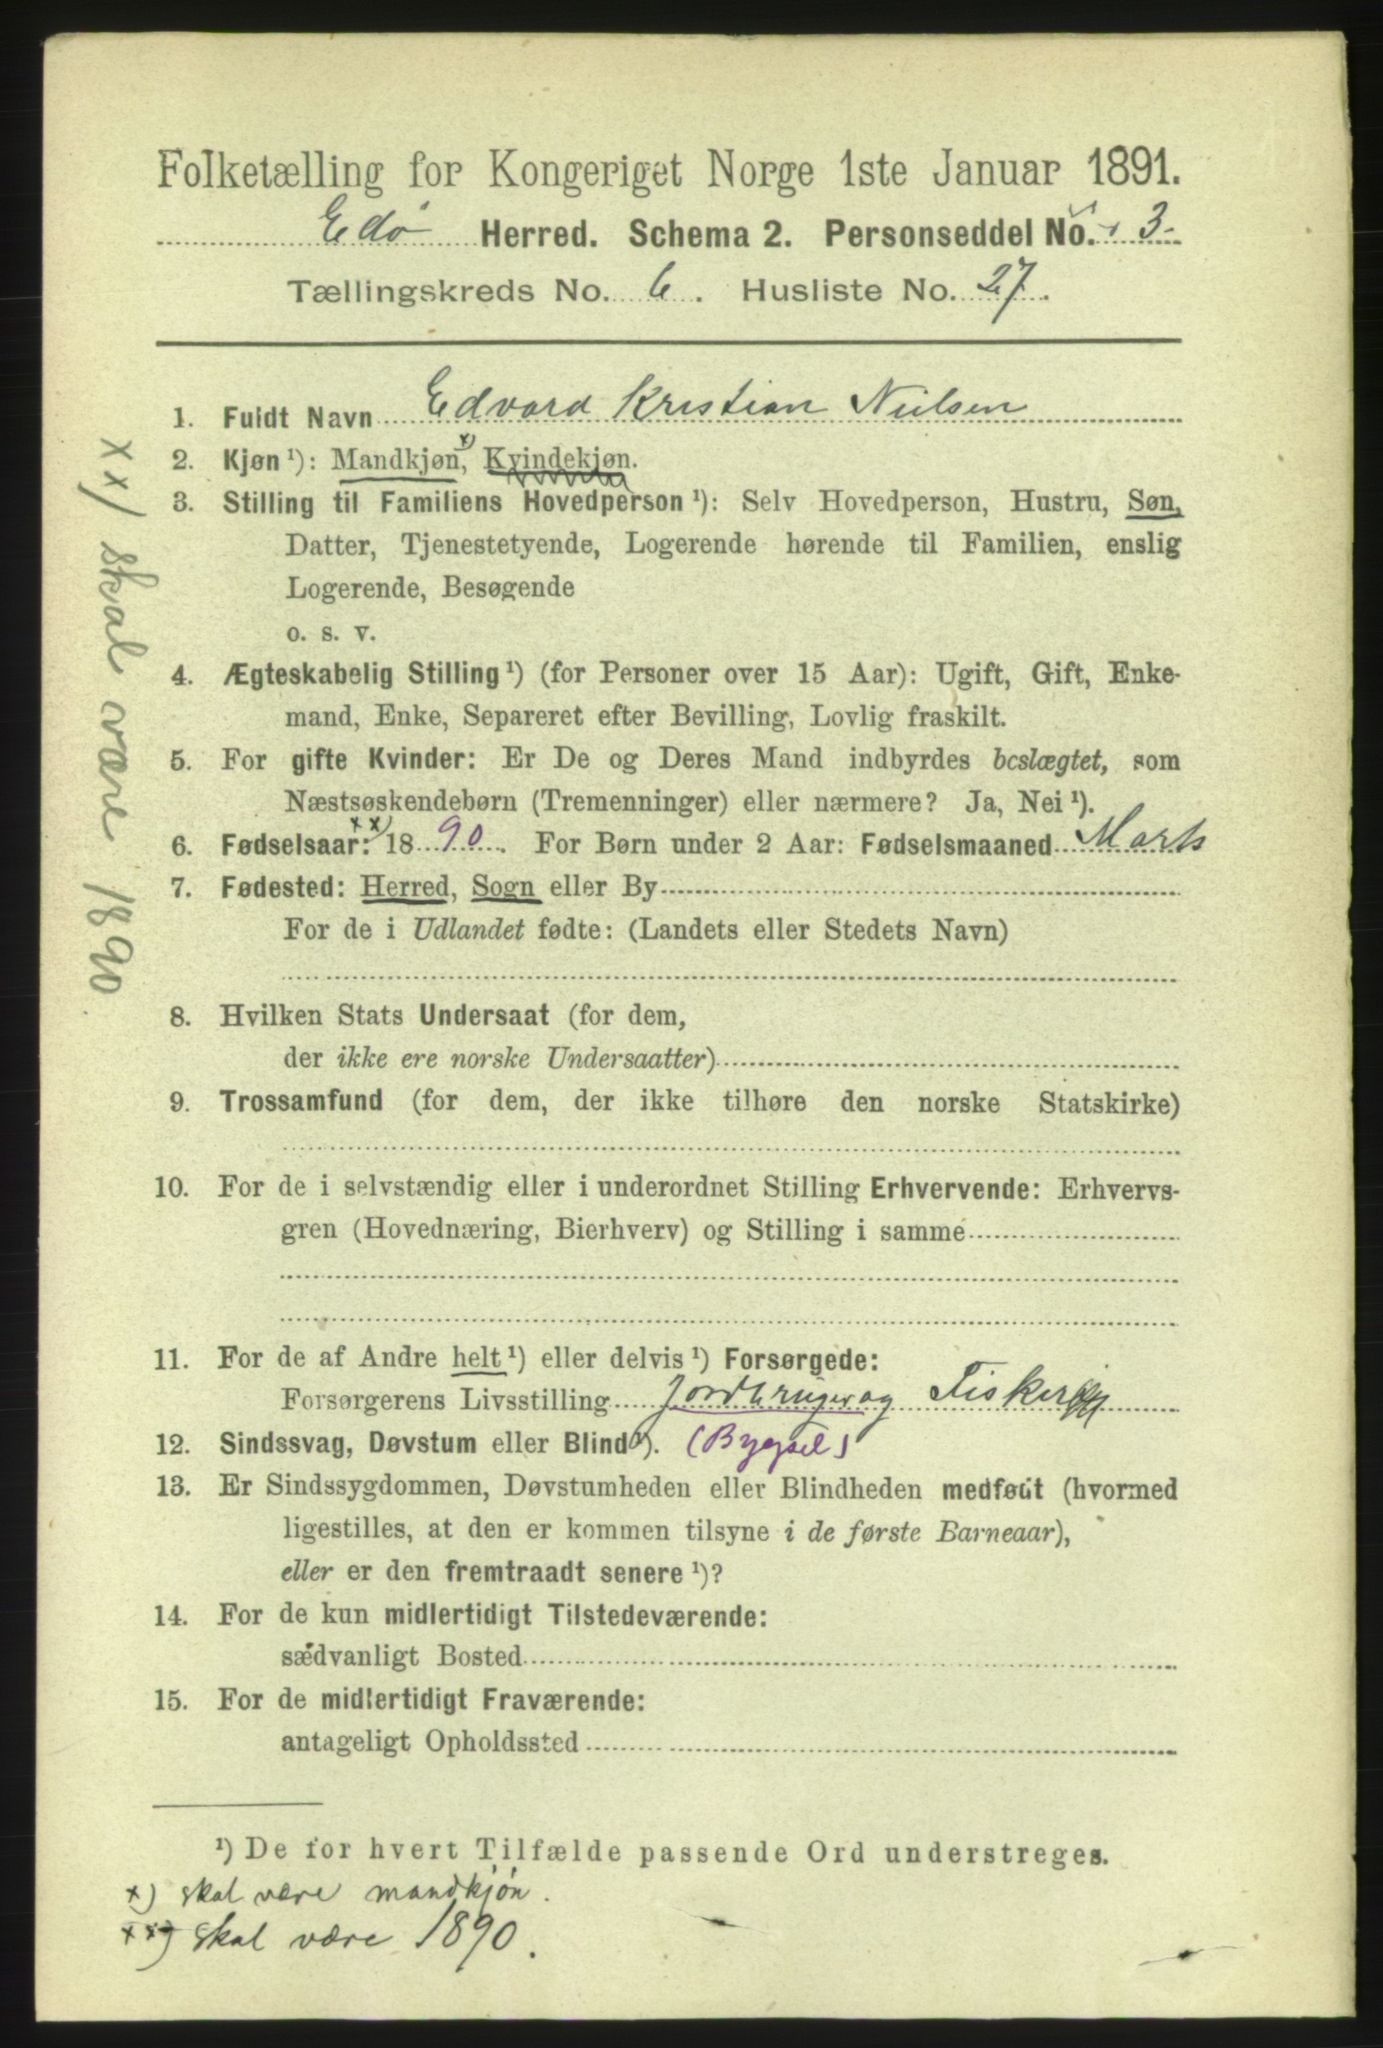 Folketælling for Kongeriget Norge 1ste Januar 1891.
Edø Herred. Schema 2. Personseddel No. 3
Tællingskreds No. 6. Husliste No. 27.
1. Fuldt Navn Edvard Kristian Nielsen
2. Kjøn ¹): Mandkjøn, x) Kvindekjøn.
3. Stilling til Familiens Hovedperson ¹): Selv Hovedperson, Hustru, Søn,
Datter, Tjenestetyende, Logerende hørende til Familien, enslig
Logerende, Besøgende
o. s. v.
4. Ægteskabelig Stilling ¹) (for Personer over 15 Aar): Ugift, Gift, Enke-
mand, Enke, Separeret efter Bevilling, Lovlig fraskilt.
5. For gifte Kvinder: Er De og Deres Mand indbyrdes beslægtet, som
Næstsøskendebørn (Tremenninger) eller nærmere? Ja, Nei ¹).
6. Fødselsaar: xx) 1890. For Børn under 2 Aar: Fødselsmaaned Marts
7. Fødested: Herred, Sogn eller By
For de i Udlandet fødte: (Landets eller Stedets Navn)
8. Hvilken Stats Undersaat (for dem,
der ikke ere norske Undersaatter)
9. Trossamfund (for dem, der ikke tilhøre den norske Statskirke)
10. For de i selvstændig eller i underordnet Stilling Erhvervende: Erhvervs-
gren (Hovednæring, Bierhverv) og Stilling i samme
11. For de af Andre helt ¹) eller delvis ¹) Forsørgede:
Forsørgerens Livsstilling Jordbruger og Fisker
12. Sindssvag, Døvstum eller Blind ¹). (Bygsel)
13. Er Sindssygdommen, Døvstumheden eller Blindheden medfødt (hvormed
ligestilles, at den er kommen tilsyne i de første Barneaar),
eller er den fremtraadt senere ¹)?
14. For de kun midlertidigt Tilstedeværende:
sædvanligt Bosted
15. For de midlertidigt Fraværende:
antageligt Opholdssted
¹) De for hvert Tilfælde passende Ord understreges.
x) skal være mandkjøn.
xx) skal være 1890.
xx) skal være 1890